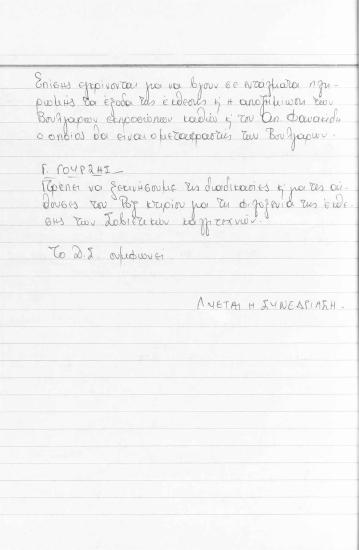 Επίσης εγκρίνονται για να βγουν σε εντάλματα πλη-
ρωμής τα έξοδα της έκθεσης κ' η αποζημίωση των
Βουλγάρων εκπροσώπων καθώς κ' του Απ. Φανακίδη
ο οποίος θα είναι ο μεταφραστής των Βουλγάρων.
Γ. ΓΟΥΡΖΗΣ
Πρέπει να ξεκινήσουμε τις διαδικασίες κ' για τις αί-
θουσες του κτιρίου για τη φιλοξενία της έκθε-
σης των Σοβιετικών καλλιτεχνών.
Το Δ.Σ. συμφωνει
ΛΥΕΤΑΙ Η ΣΥΝΕΔΡΙΑΣΗ.